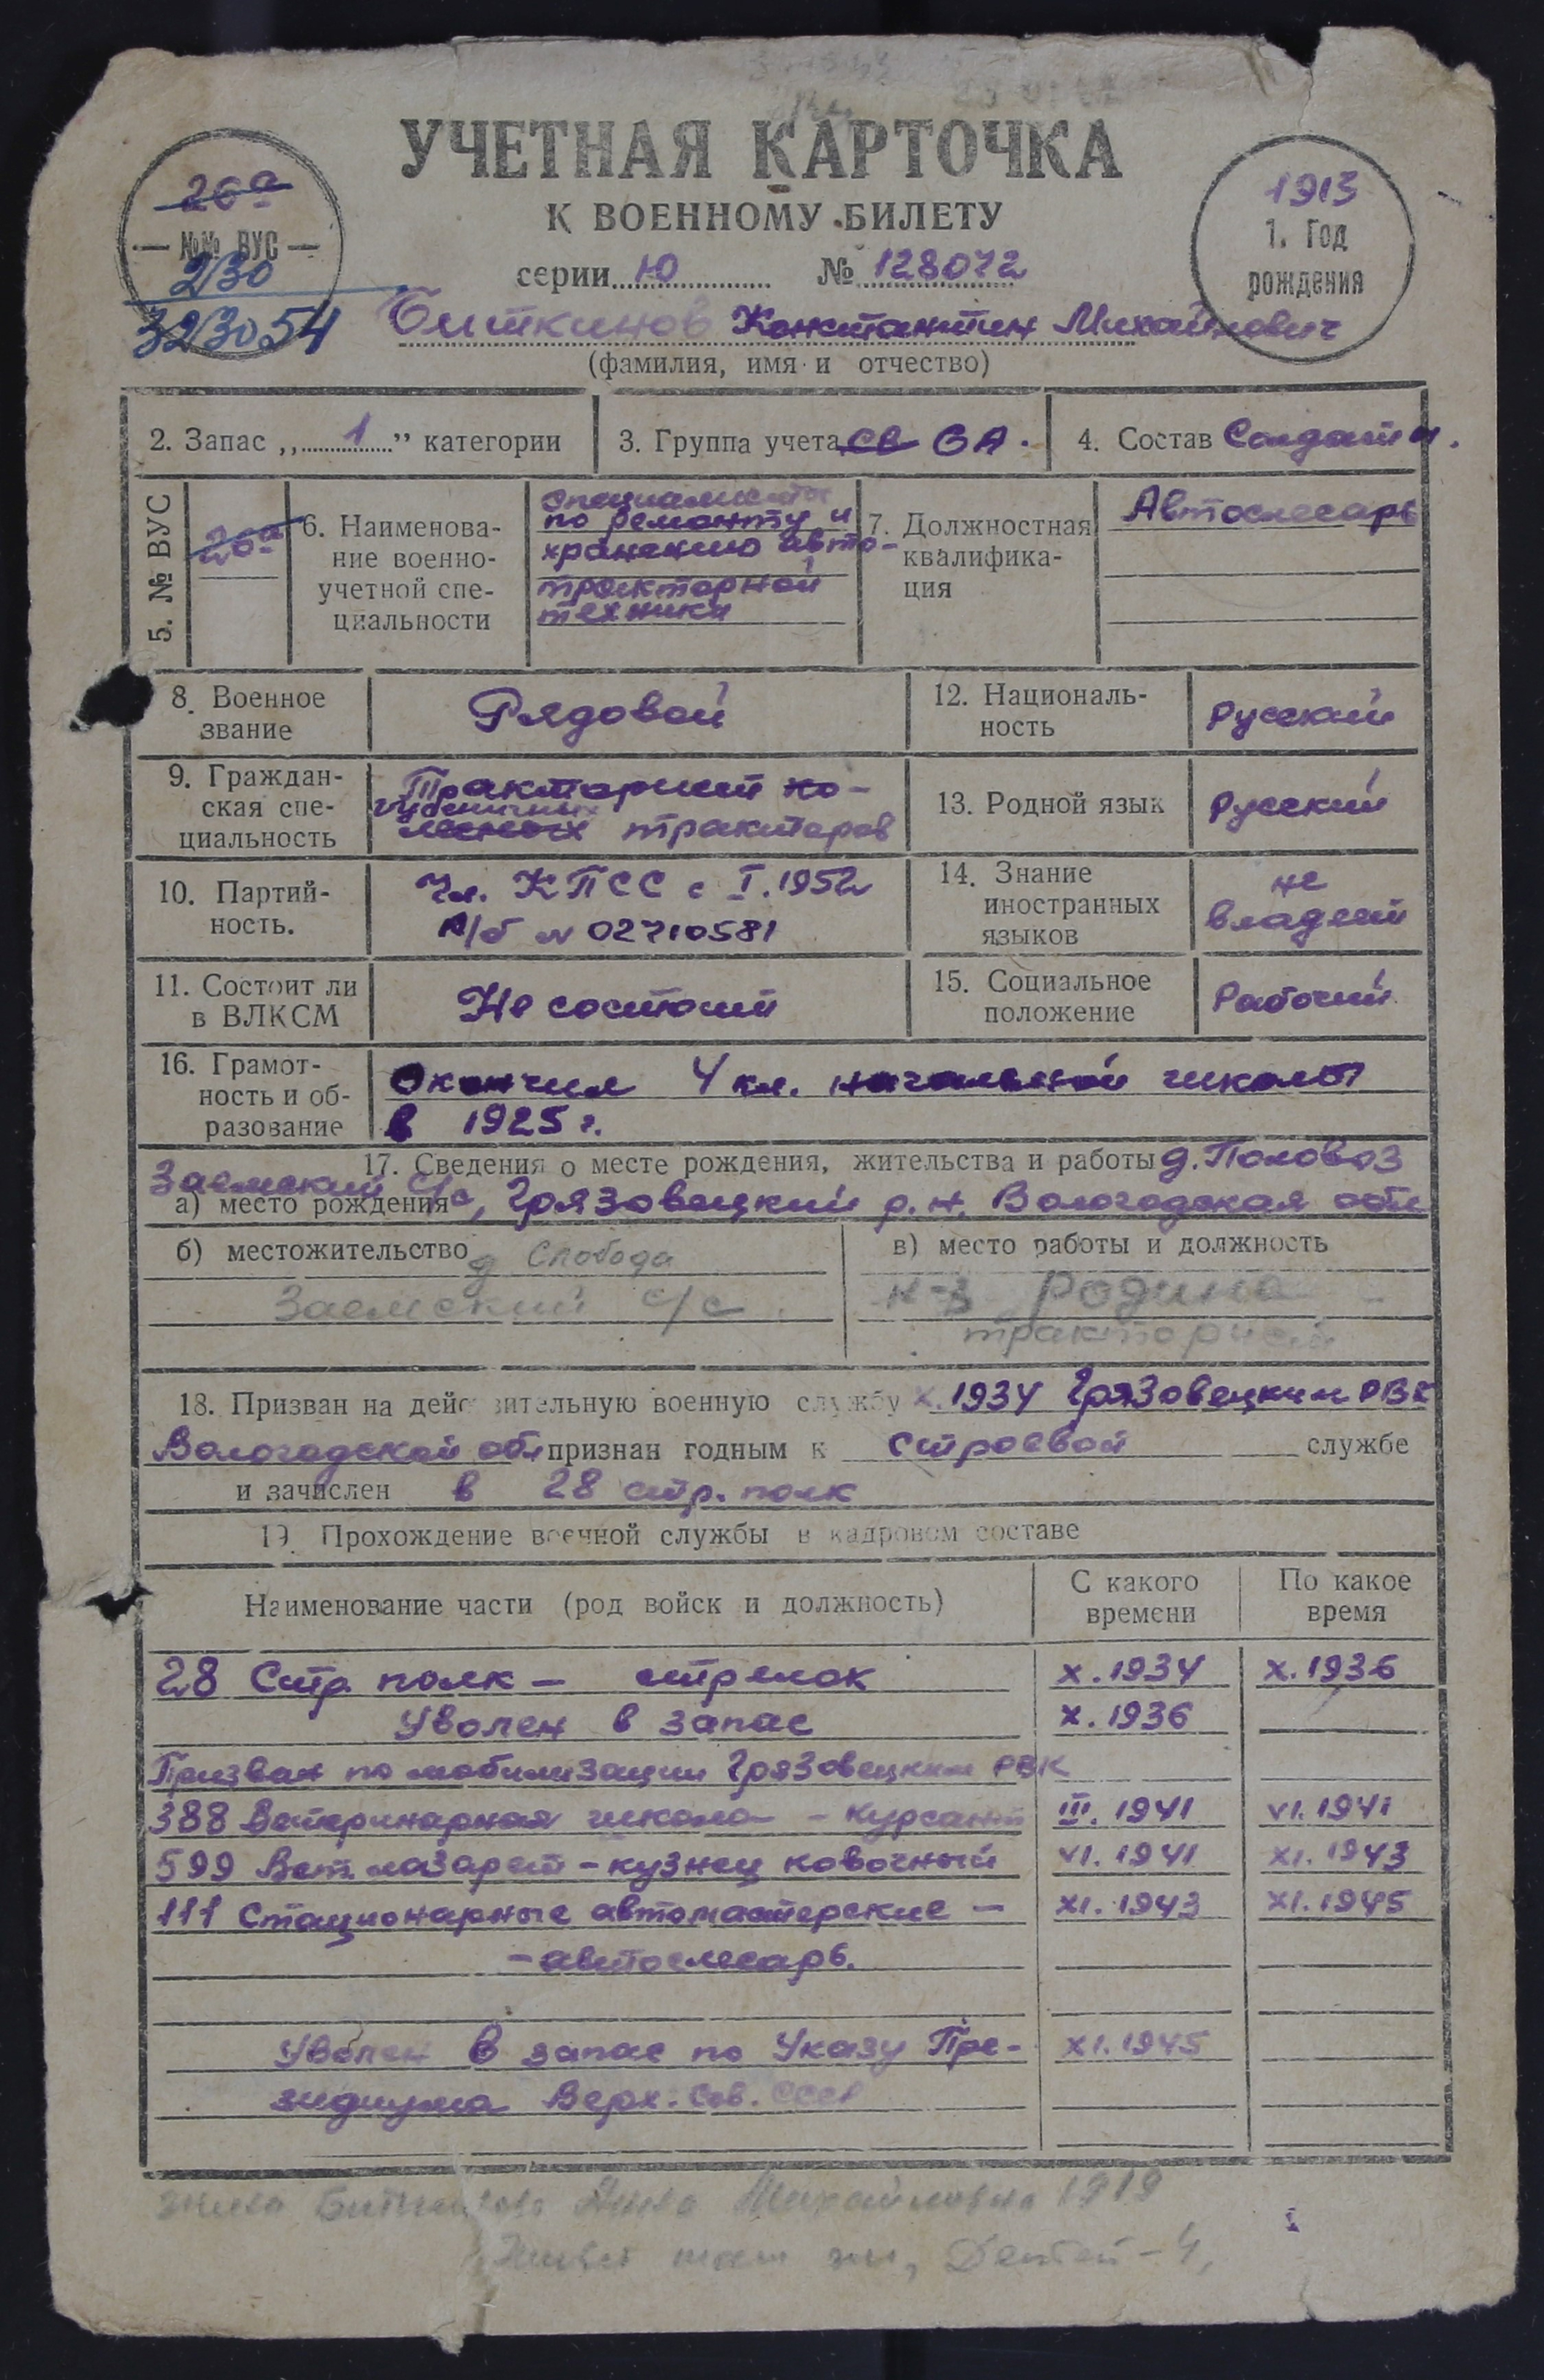 УЧЕТНАЯ КАРТОЧКА
К ВОЕННОМУ БИЛЕТУ
серии Ю № 128072
26а
№№ ВУС
230
323054
1913
1. Год
рождения
Биткинов Константин Михайлович
(фамилия, имя и отчество)
2. Запас „1” категории
3. Группа учета СВ СА.
4. Состав Солдаты.
5. № ВУС
26а
6. Наименова-
ние военно-
учетной спе-
циальности
специалисты
по ремонту и
хранению авто-
тракторной
техники
7. Должностная
квалифика-
ция
Автослесарь
8. Военное
звание
Рядовой
12. Националь-
ность
Русский
9. Граждан-
ская спе-
циальность
Тракторист ко-
гусеничных
лесных тракторов
13. Родной язык
Русский
10. Партий-
ность.
Чл. КПСС с I.1952
п/б № 02710581
14. Знание
иностранных
языков
не
владеет
11. Состоит ли
в ВЛКСМ
Не состоит
15. Социальное
положение
Рабочий
16. Грамот-
ность и об-
разование
Окончил 4 кл. начальной школы
в 1925 г.
17. Сведения о месте рождения, жительства и работы д. Половоз
Заемский С/с, Грязовецкий р.н. Вологодская обл
а) место рождения
б) местожительство д Слобода
Заемский с/с
в) место работы и должность
к-з Родина
тракторист
18. Призван на действительную военную службу X.1934 Грязовецким РВК
Вологодской обл признан годным к строевой службе
и зачислен в 28 стр. полк
19. Прохождение военной службы в кадровом составе
Наименование части (род войск и должность)
С какого
времени
По какое
время
28 Стр. полк – стрелок X.1934 X.1936
Уволен в запас X.1936
Призван по мобилизации Грязовецким РВК
388 Ветеринарная школа – курсант III.1941 VI.1941
599 Вет. лазарет – кузнец ковочный VI.1941 XI.1943
111 Стационарные автомастерские – XI.1943 XI.1945
– автослесарь.
Уволен в запас по Указу Пре- XI.1945
зидиума Верх. Сов. СССР
жена Биткинова Анна Михайловна 1919
Живет там же, Детей – 4,